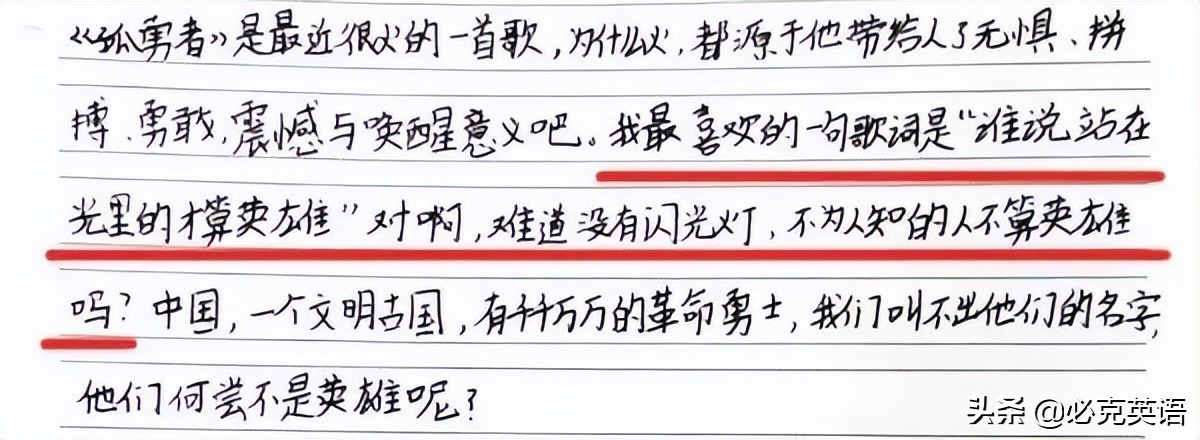 《孤勇者》是最近很火的一首歌，为什么火，都源于他带给人了无惧、拼
搏、勇敢，震憾与唤醒意义吧。我最喜欢的一句歌词是“谁说站在
光里的才算英雄”对啊，难道没有闪光灯，不为人知的人不算英雄
吗？中国，一个文明古国，有千千万万的革命勇士，我们叫不出他们的名字，
他们何尝不是英雄呢？
头条 @必克英语